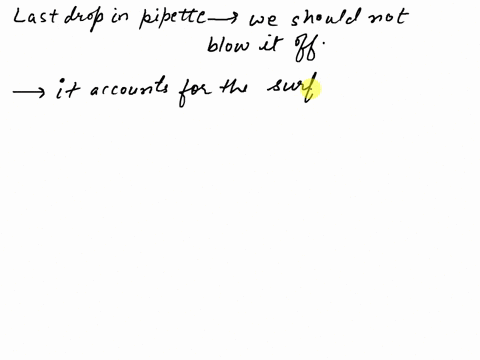 Last drop in pipette → we should not
blow it off.
→ it accounts for the surf